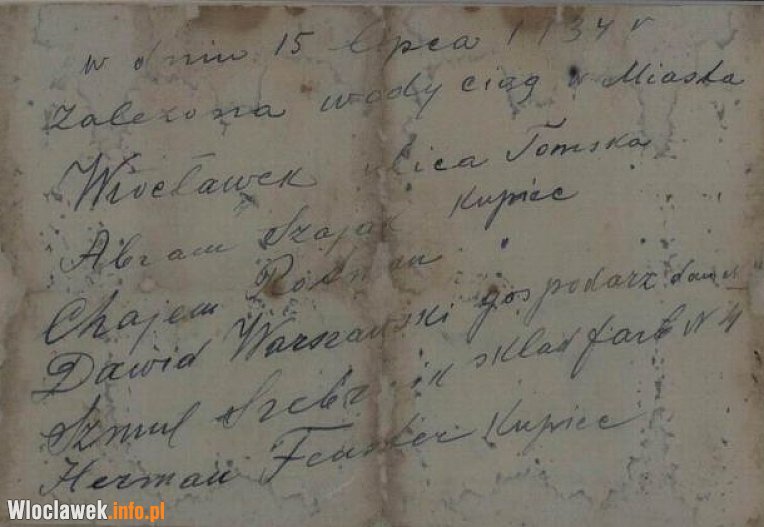 w dniu 15 lipca 1934 r
Założona wodyciąg w Miasta
Włocławek ulica Tomska
Abram Szajak Kupiec
Chajem
Dawid Warszawski gospodarz domu
Szmul skład farb N 4
Herman Fenster Kupiec
Wloclawek.info.pl